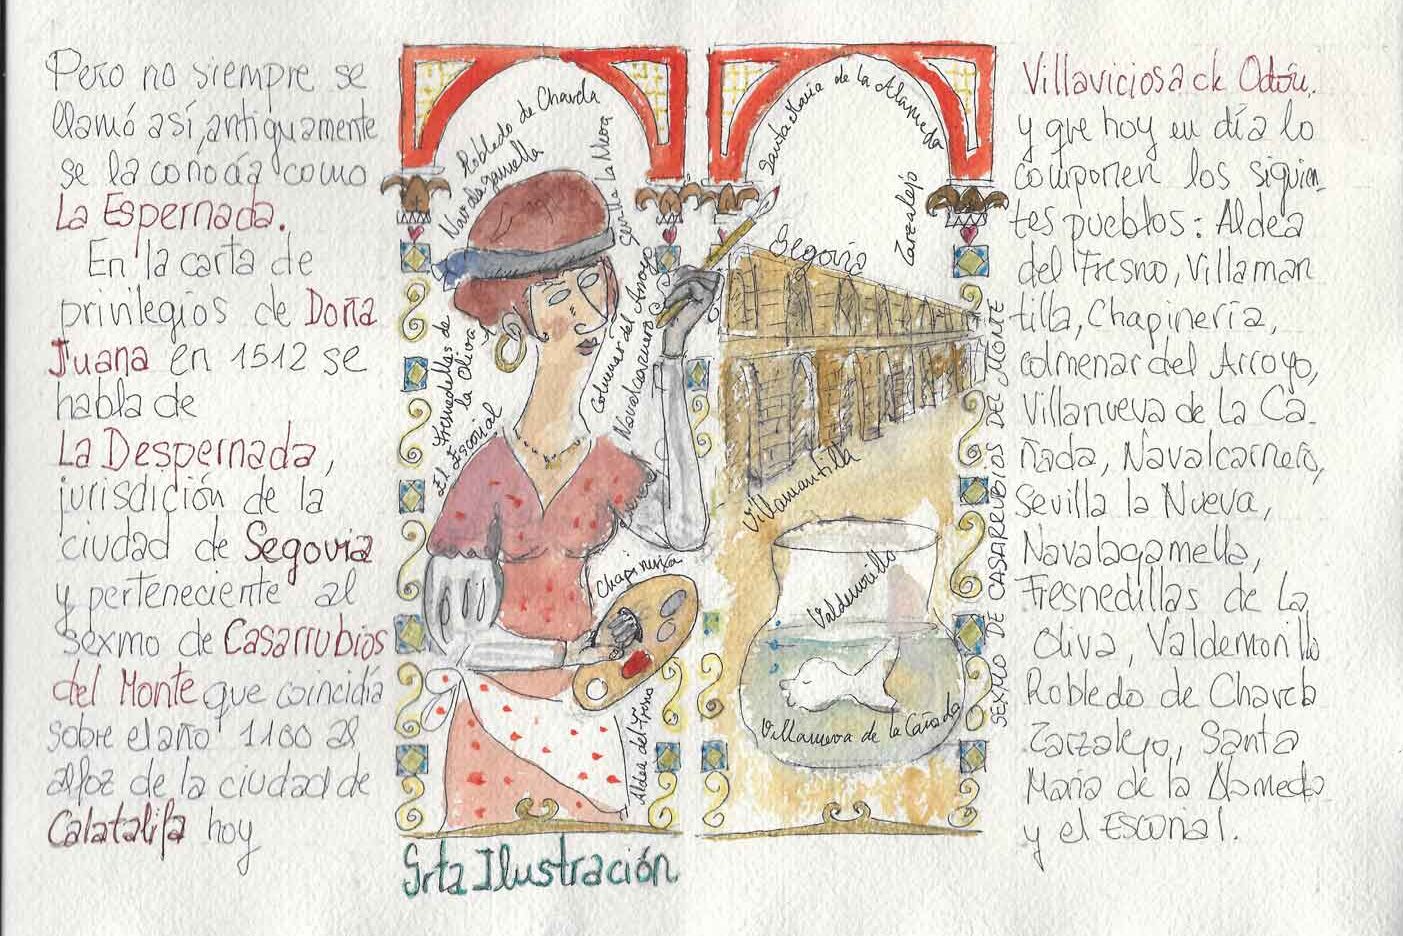 Pero no siempre se
llamó así, antiguamente
se la conocía como
La Espernada.
En la carta de
privilegios de Doña
Juana en 1512 se
habla de
La Despernada,
jurisdicción de la
ciudad de Segovia
y perteneciente al
sexmo de Casarrubios
del Monte que coincidía
sobre el año 1100 al
alfoz de la ciudad de
Calatalifa hoy
Robledo de Chavela
Navalagamella
Sevilla La Nueva
Fresnedillas de
la Oliva
El Escorial
Colmenar del Arroyo
Navalcarnero
Chapinería
Aldea del Fresno
Srta Ilustración
Santa María de la Alameda
Zarzalejo
Segovia
Villamantilla
Valdemorillo
Villanueva de la Cañada
SEXMO DE CASARRUBIOS DEL MONTE
Villaviciosa de Odón,
y que hoy en día lo
componen los siguien-
tes pueblos: Aldea
del Fresno, Villaman
tilla, Chapinería,
colmenar del Arroyo,
Villanueva de La Ca-
ñada, Navalcarnero,
Sevilla la Nueva,
Navalagamella,
Fresnedillas de La
Oliva, Valdemorillo
Robledo de Chavela
Zarzalejo, Santa
María de la Alameda
y el Escorial.